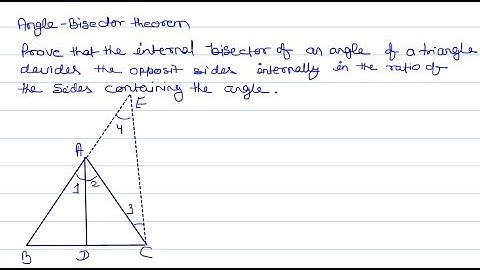 Angle-Bisector theorem
Prove that the internal bisector of an angle of a triangle
devides the opposit sides internally in the ratio of
the sides containing the angle.
E
4
A
1 2
3
B D C